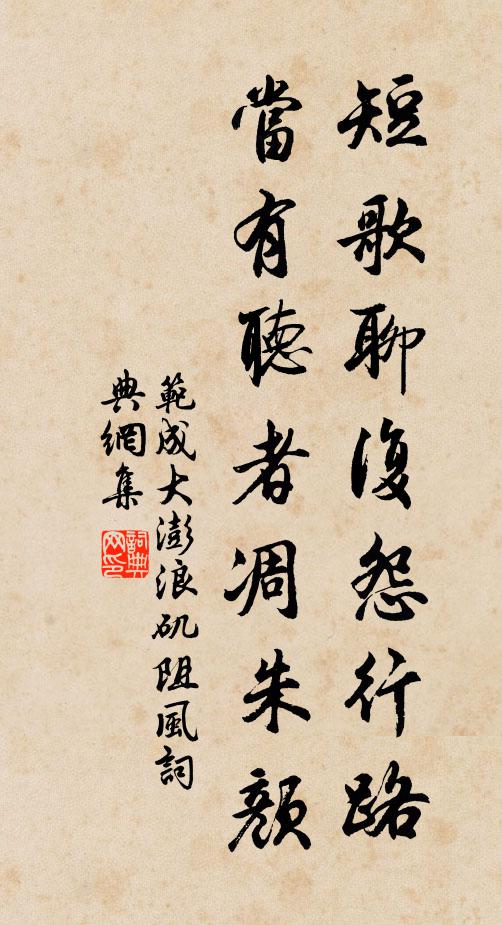 短歌聊復怨行路
當有聽者凋朱顏
範成大澎浪矶阻風詞
典網集
詞典
网印